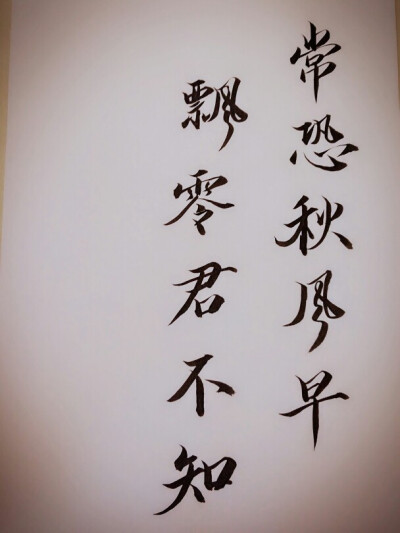 常恐秋风早
飄零君不知